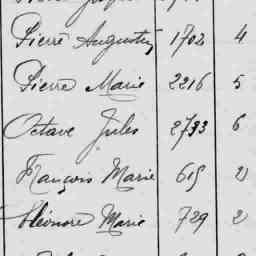 Pierre Augustin 1702 4
Pierre Marie 2216 5
Octave Jules 2733 6
François Marie 615 2
Eléonore Marie 729 2